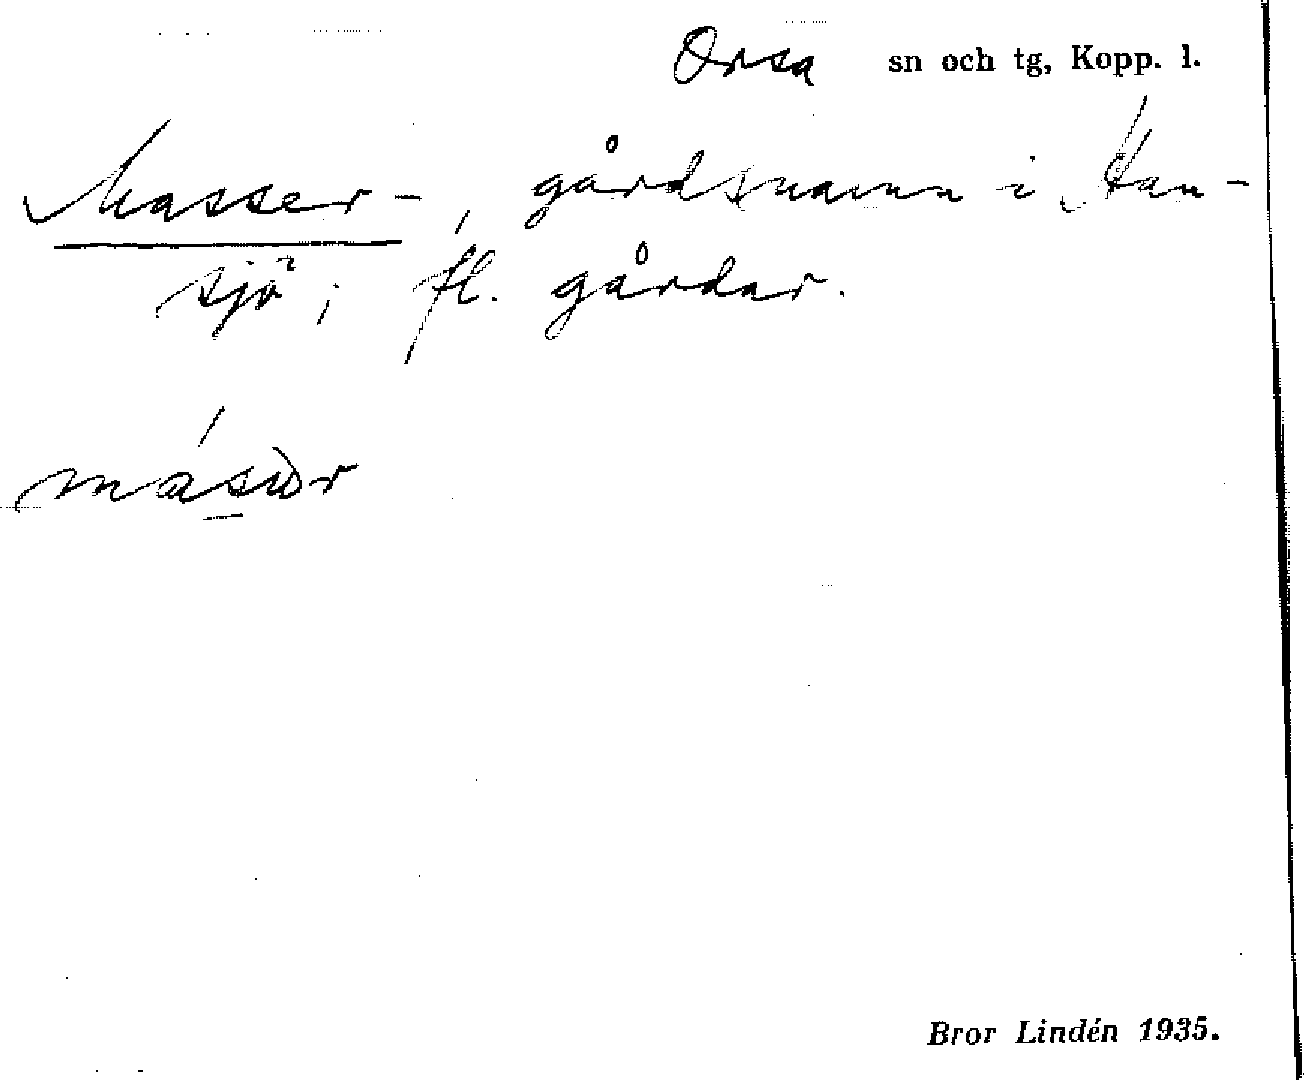 Orsa sn och tg, Kopp. l.
Masser-, gårdsnamn i Han-
sjö; fl. gårdar.
Bror Lindén 1935.